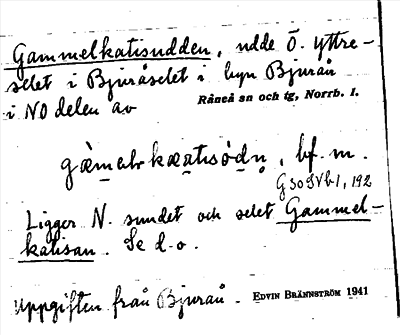 Gammelkatisudden, udde Ö. yttre-
selet i Bjuråselet i byn Bjurån
i NO delen av Råneå sn och tg, Norrb. l.
gàmalv kæatısödṇ, bf. m.
G 30 SV b1, 192
Ligger N. sundet och selet Gammel-
katisan. Se d. o.
Uppgiften från Bjurån. EDVIN BRÄNNSTRÖM 1941